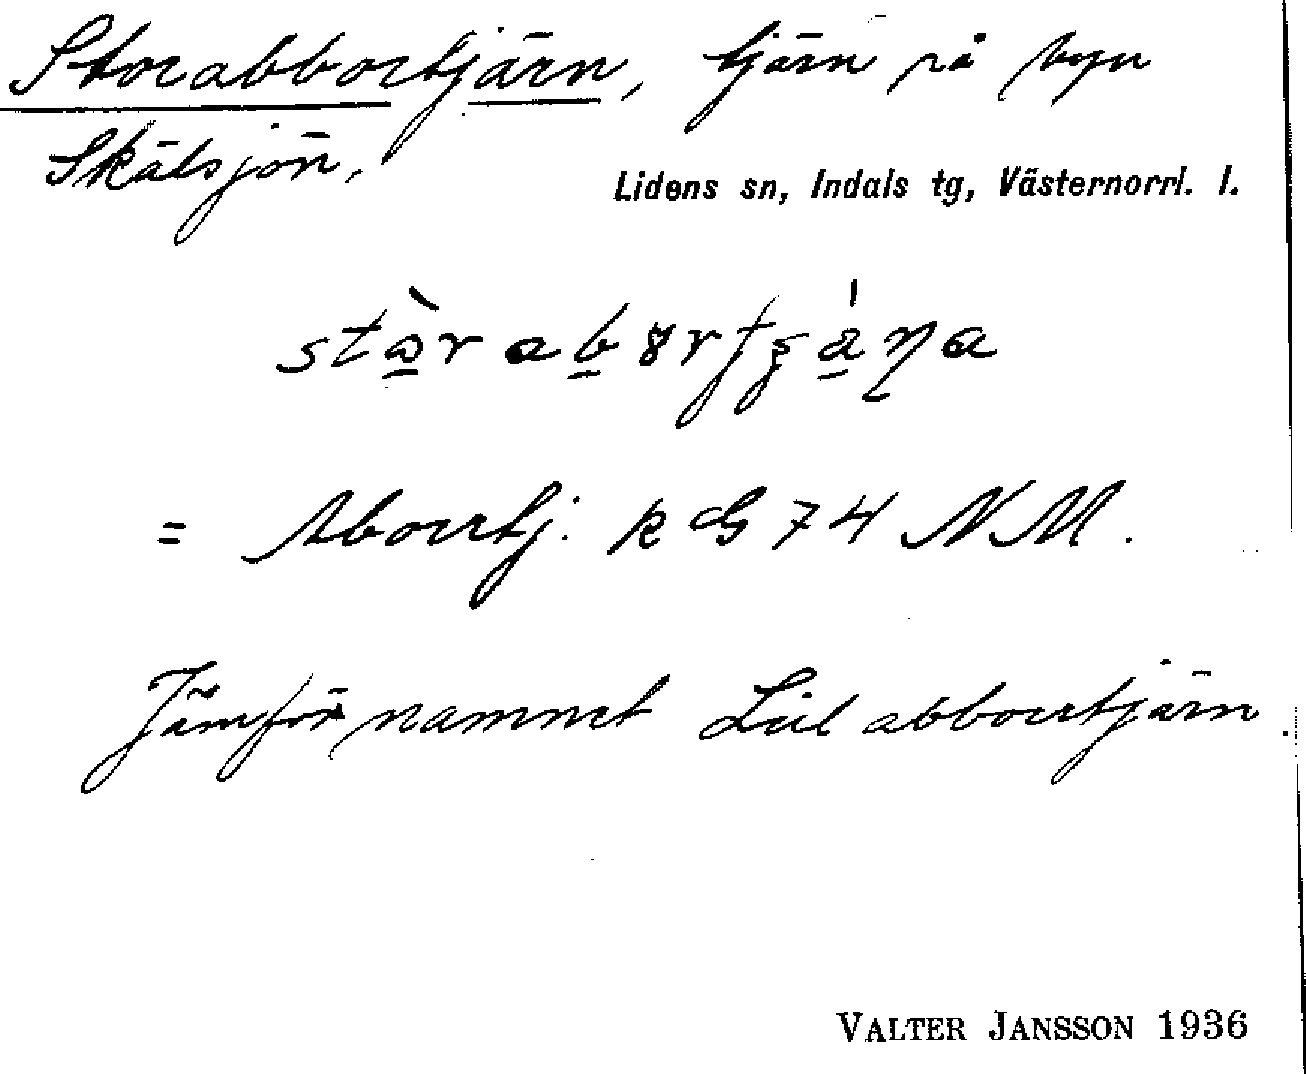 Storabbortjärn, tjärn på byn
Skälsjön,
Lidens sn, Indals tg, Västernorrl. l.
= Aborrtj. k G 74 NM.
Jämför namnet Lill abborrtjärn.
VALTER JANSSON 1936